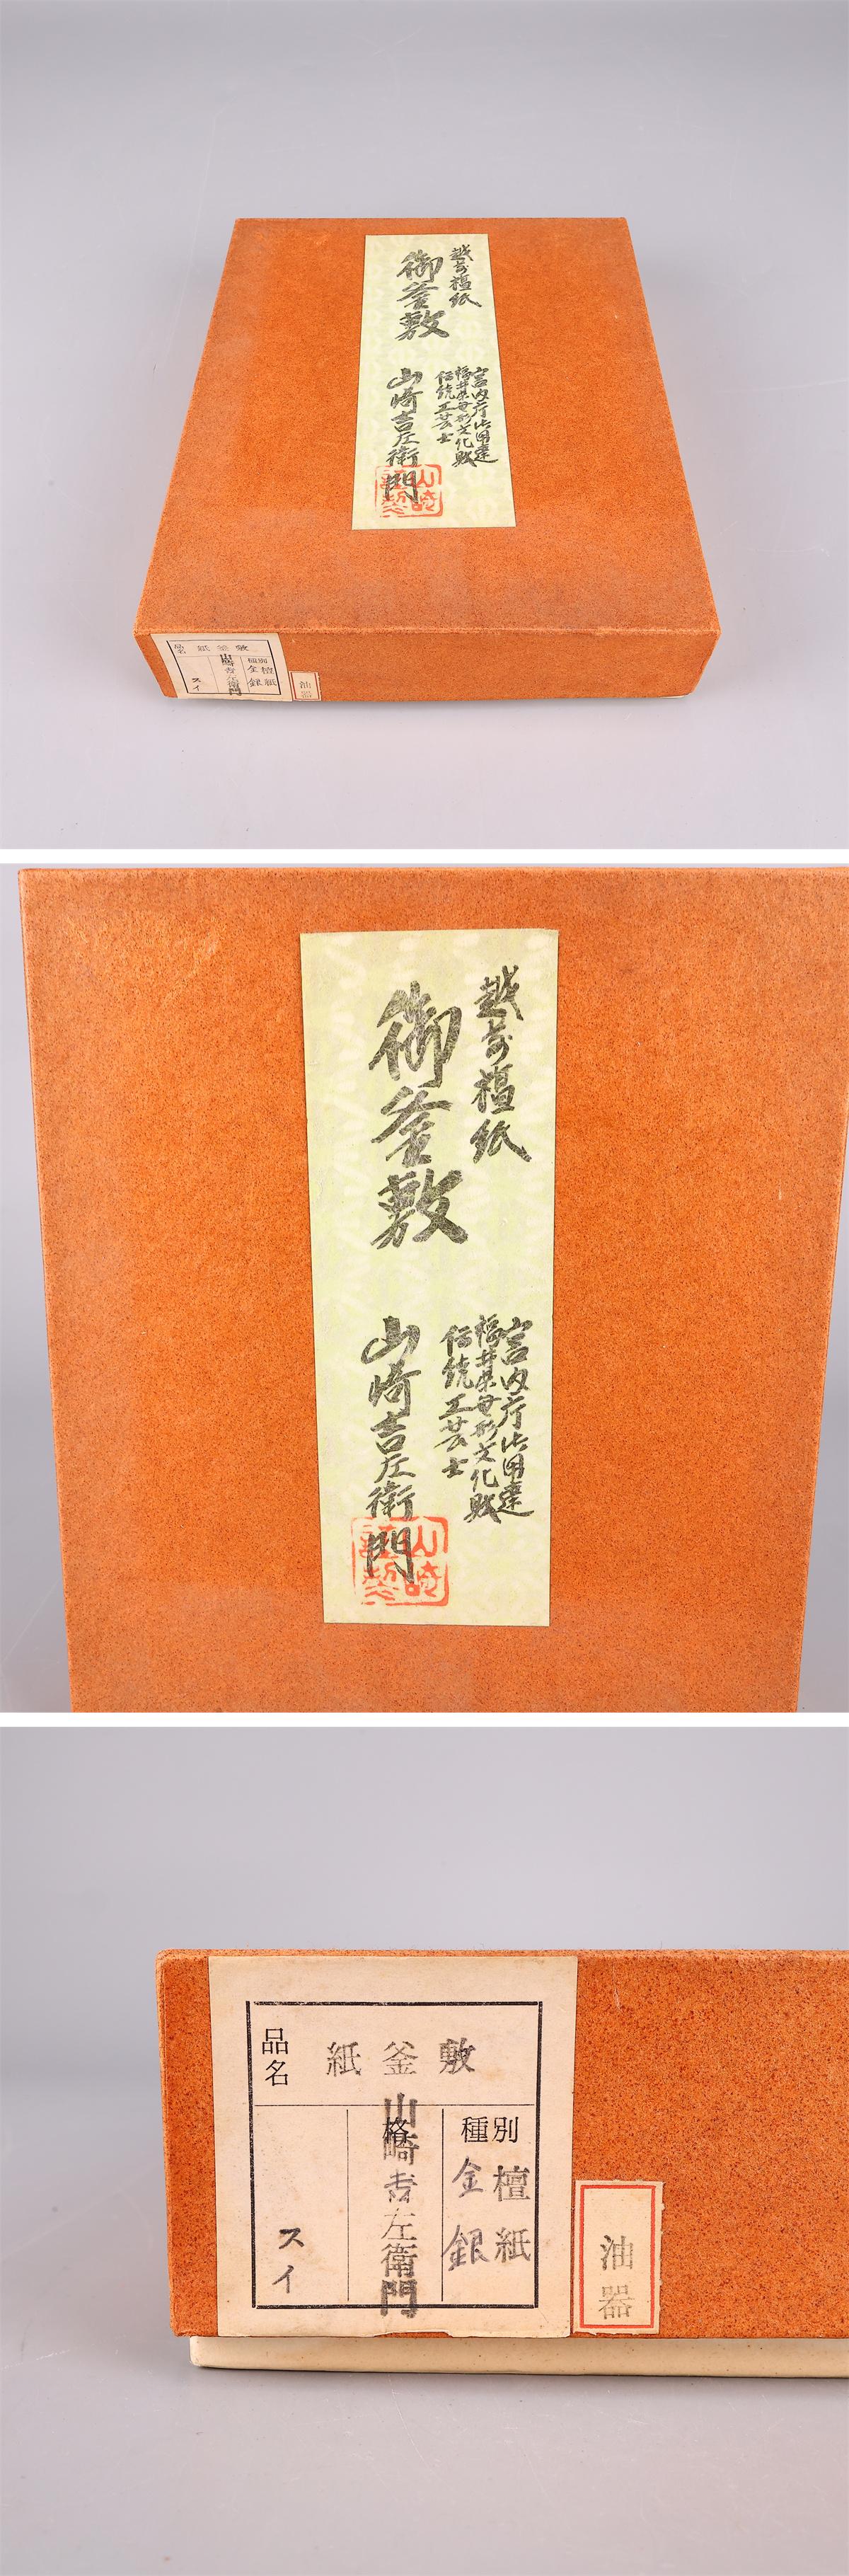 越前檀紙
御釜敷
宮内庁御用達
福井県無形文化財
伝統工芸士
山崎吉左衛門
品名 紙釜敷
種別 檀紙
金銀
山崎吉左衛門
スイ
油器
越前檀紙
御釜敷
宮内庁御用達
福井県無形文化財
伝統工芸士
山崎吉左衛門
山崎
品名
紙釜敷
種別
檀紙
金銀
格
山崎吉左衛門
スイ
油器